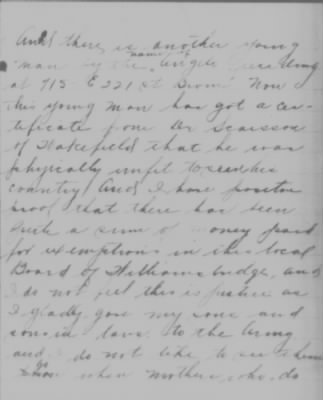 And there is another young
man by the name of Angelo residing
at 915 E 221 st Bronx Now
this young man has got a cer-
tificate from Dr
of Wakefield that he was
physically unfit to serve his
country And I have positive
proof that there has been
such a sum of money paid
for exemptions in this local
Board of Williamsbridge, and
I do not feel this is justice as
I gladly gave my sons and
sons in laws to the Army
and I do not like to see them
go when mothers who do